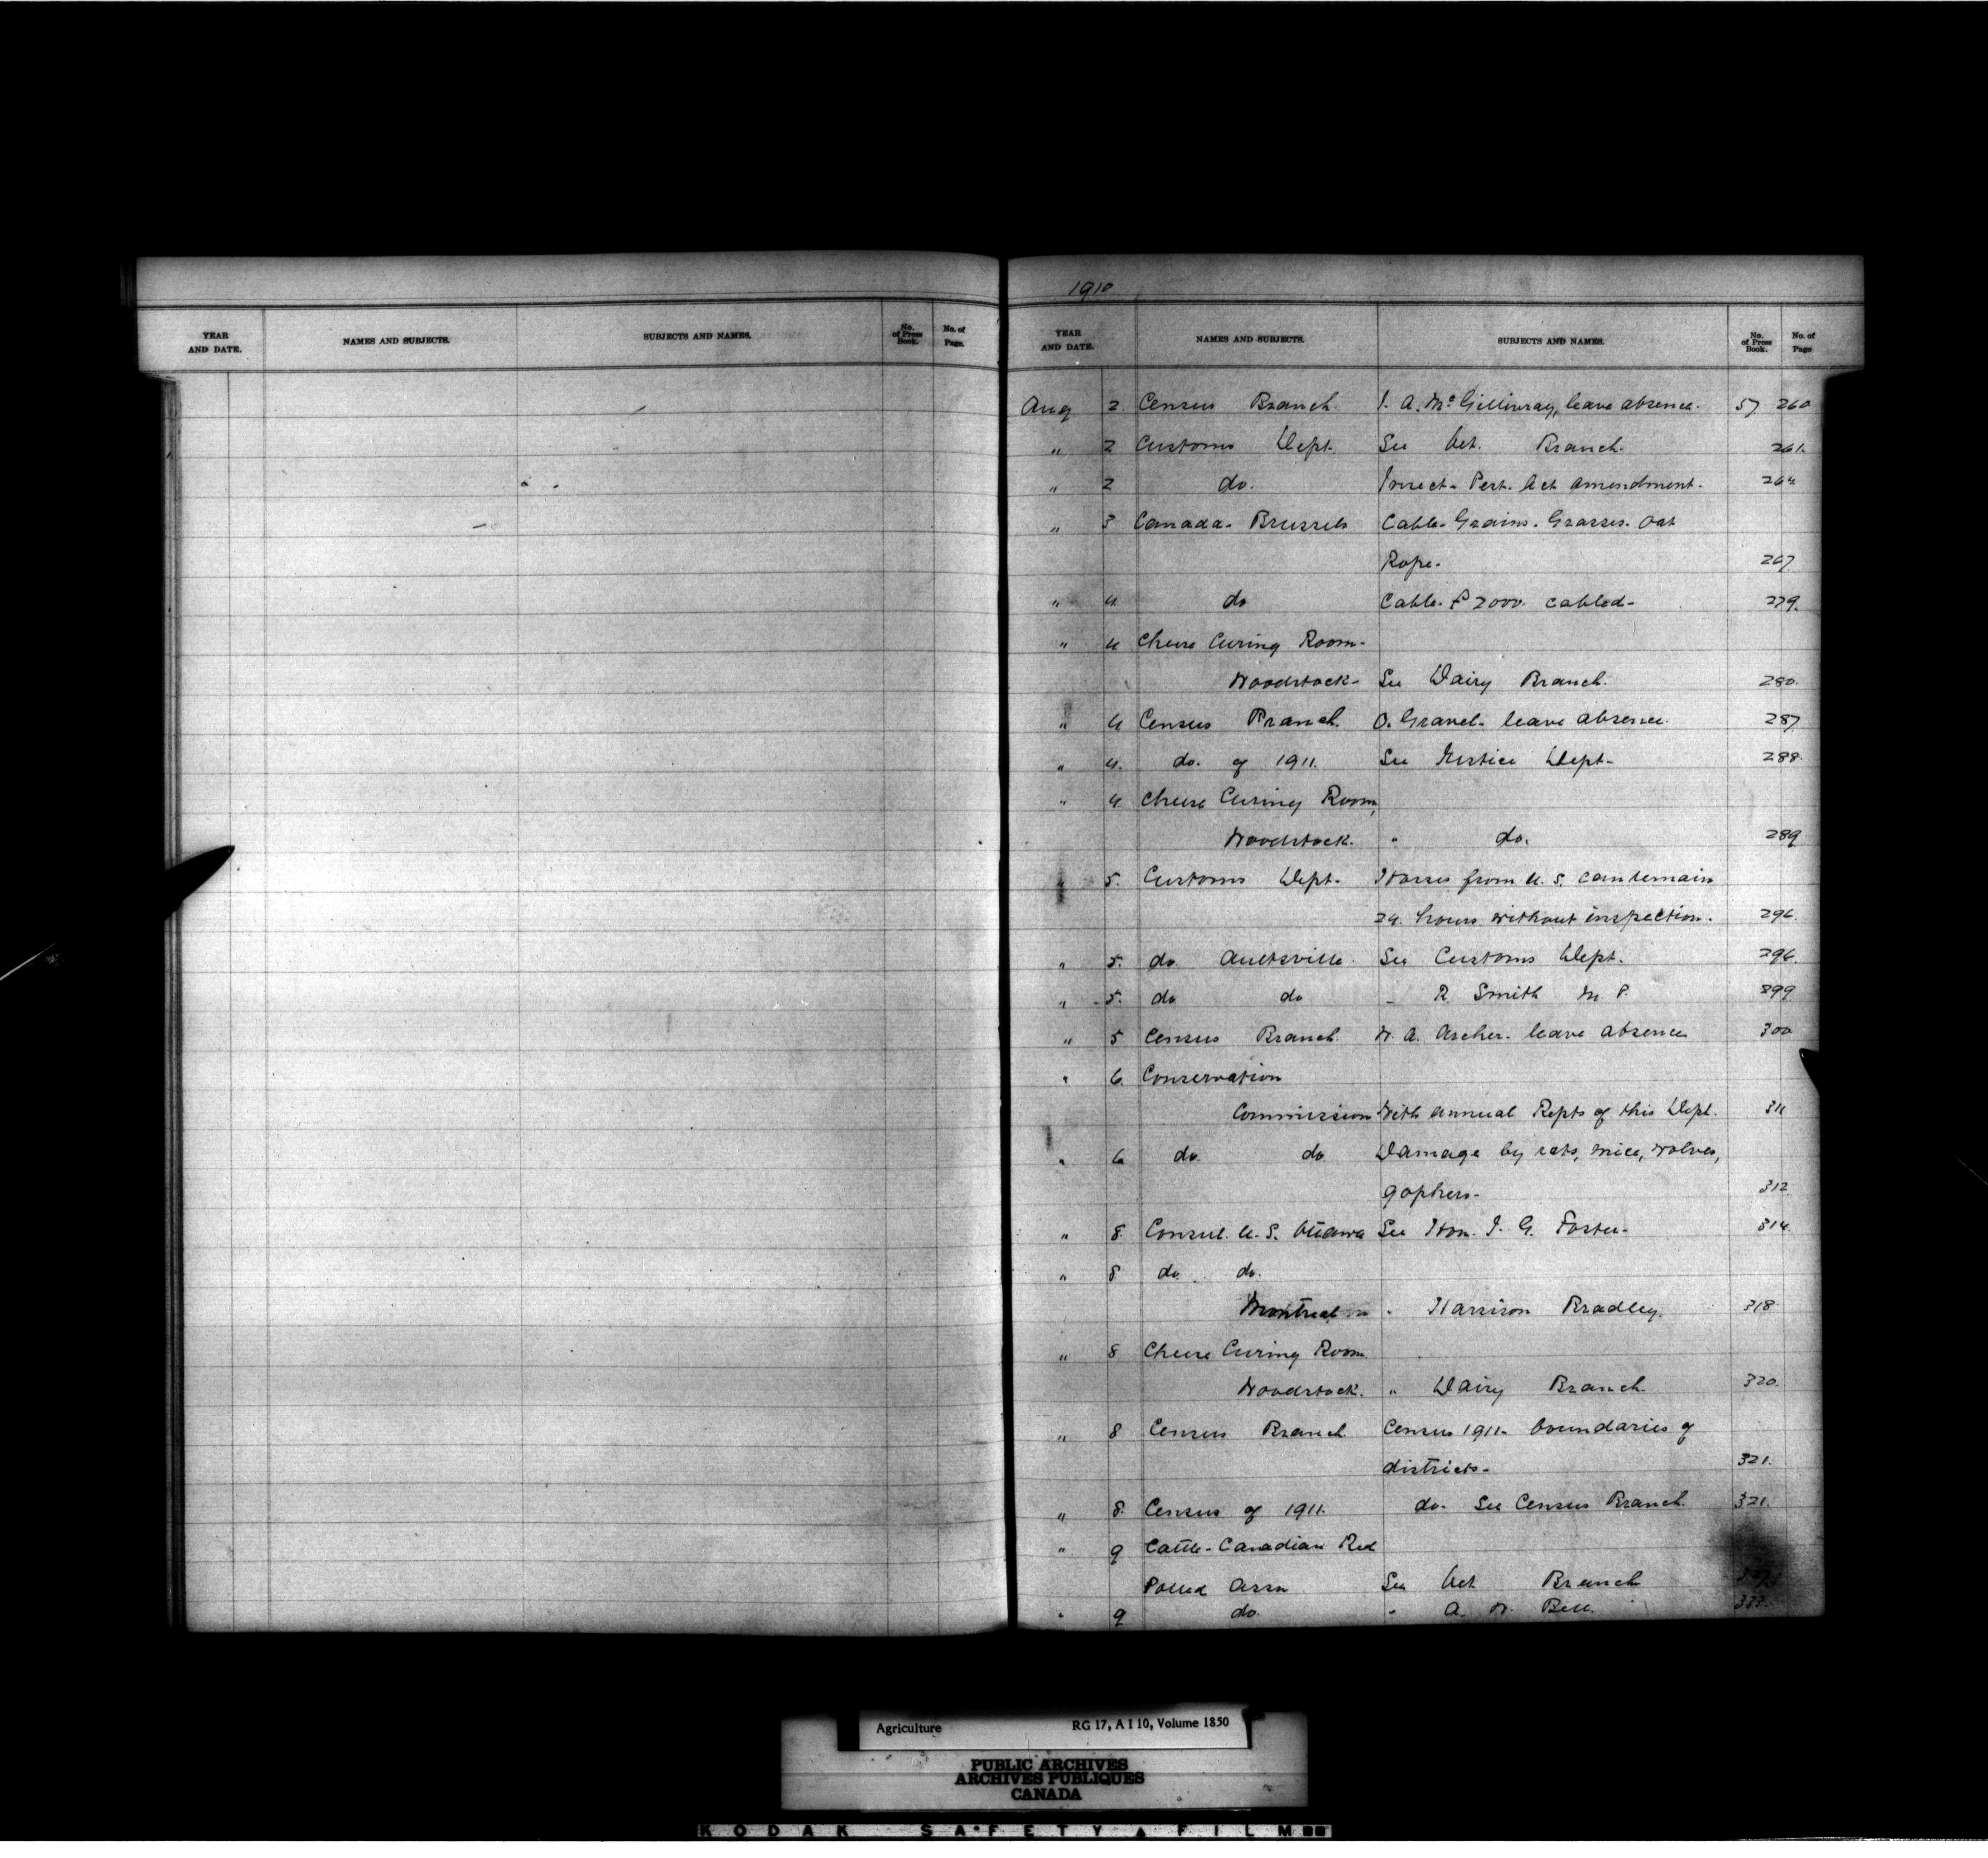 YEAR AND DATE. NAMES AND SUBJECTS. SUBJECTS AND NAMES. No. of Press Book. No. of Page.
1910
YEAR AND DATE. NAMES AND SUBJECTS. SUBJECTS AND NAMES. No. of Press Book. No. of Page
Aug 2. Census Branch. A. McGillivray, leave absence. 57 260
" 2 Customs Dept. See Vet. Branch. 261.
" 2 do. Insect - Pest. Act amendment. 264
" 3 Canada - Brussels Cable - Grains. Grasses. Oat
Rope. 267
" 4. do Cable. £2000. cabled - 279.
" 4 Cheese Curing Room -
Woodstock - See Dairy Branch. 280.
" 4 Census Branch. O. Gravel - leave absence. 287
" 4. do. of 1911. See Justice Dept - 288.
" 4 Cheese Curing Room,
Woodstock. " do. 289
" 5. Customs Dept - Horses from U. S. can remain
24. hours without inspection. 296.
" 5. do. Aultsville. See Customs Dept. 296.
" 5. do do " R Smith M P. 299
" 5 Census Branch. W. A. Archer - leave absence 300
" 6. Conservation
Commission With annual Repts of this Dept. 311
" 6 do. do Damage by rats, mice, wolves,
gophers - 312
" 8 Consul. U. S. Ottawa See Hon. J. G. Foster - 314.
" 8 do. do.
Montreal " Harrison Bradley. 318
" 8 Cheese Curing Room.
Woodstock. " Dairy Branch 320.
" 8 Census Branch Census 1911 - boundaries of
districts - 321.
" 8. Census of 1911. do. See Census Branch. 321.
" 9 Cattle - Canadian Red
Polled Assn See Vet Branch
" 9 do. " A. W. Bell. 333.
Agriculture RG 17, A I 10, Volume 1850
PUBLIC ARCHIVES
ARCHIVES PUBLIQUES
CANADA
KODAK SAFETY FILM